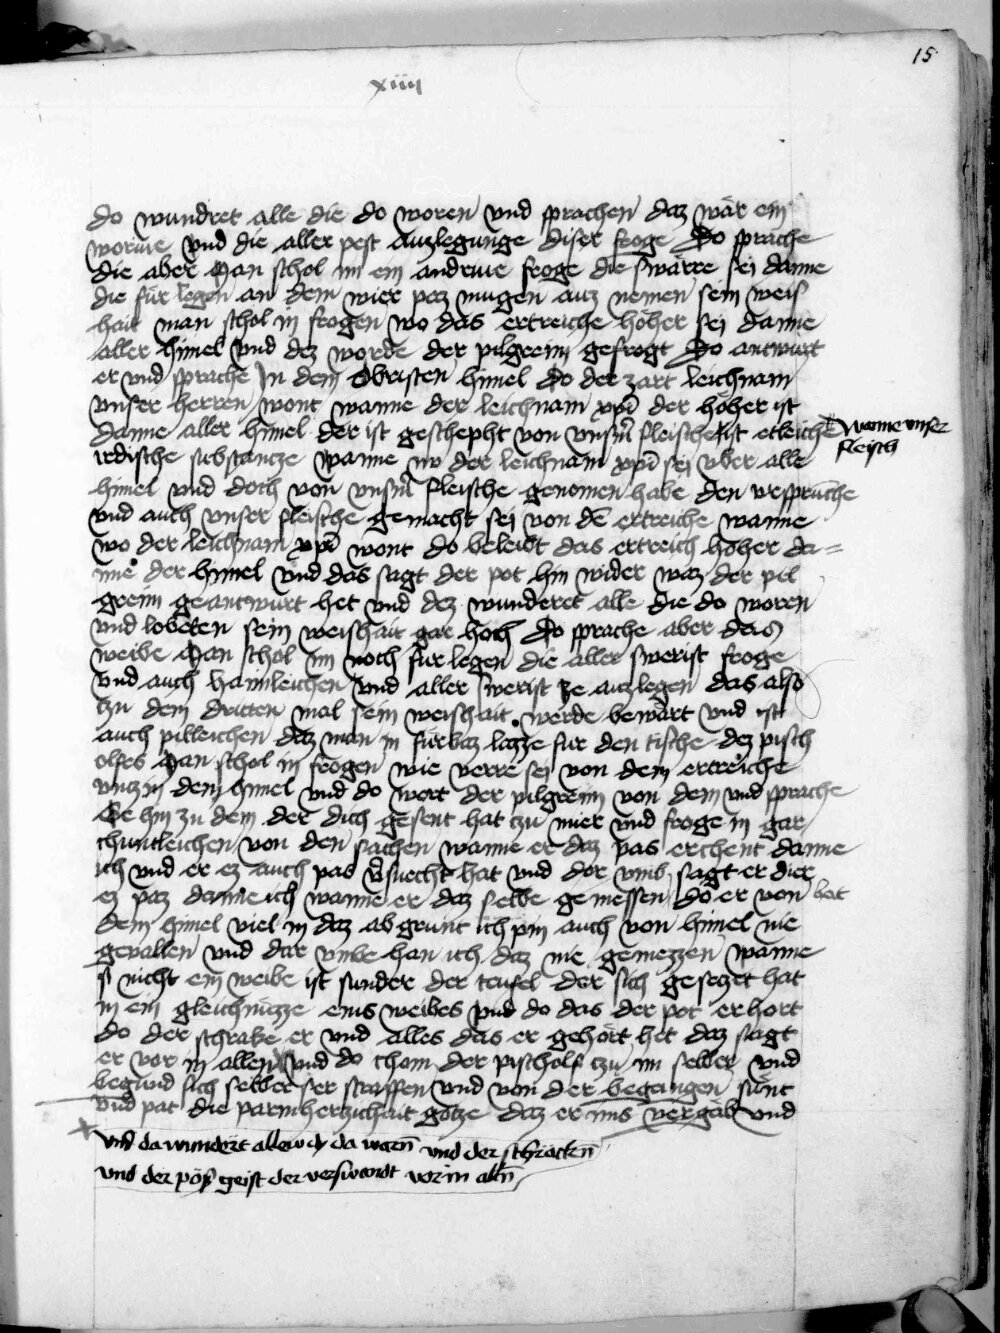 15
xiiii
do wundret alle die do woren vnd sprachen daz wär ein
worwe vnd die aller pest auzlegunge diser froge Do sprache
die aber Man schol im ein andrwe froge die swärre sei danne
die für legen an dem wier paz mugen auz nemen sein weis
hait man schol in frogen wo das ertreiche höher sei danne
aller himel vnd dez worde der pilgreim gefrogt Do antwurt
er vnd sprache In dem Obristen himel do der zart leichnam
vnser herren wont wanne der leichnam xpi der höher ist
danne aller himel der ist geschepht von vnsm fleische ist etleiche
wanne vnser
fleisch
irdische substantze wanne nv der leichnam xpi sei vber alle
himel vnd doch von vnsm fleische genomen habe den vrsprunche
vnd auch vnser fleische gemacht sei von de ertreiche wanne
wo der leichnam xpi wont do beleibt das ertreich höher da=
nne der himel vnd das sagt der pot hin wider waz der pil
greim geantwurt het vnd dez wunderet alle die do woren
vnd lobeten sein weischait gar hoch Do sprache aber das
weibe Man schol im noch für legen die aller swerist froge
vnd auch haimleichen vnd aller swerist ze auzlegen das also
tzu dem dritten mal sein weischait werde bewärt vnd ist
auch pilleichen daz man in fürbaz lazze für den tische dez pisch
olfes Man schol in frogen wie verre sei von dem ertreiche
vntz in dem himel vnd do wort der pilgreim von dem vnd sprache
Ge hin zu dem der dich gesent hat tzu mier vnd froge in gar
chuntleichen von den sachen wanne er daz pas erchent danne
ich vnd er ez auch pas vsuecht hat vnd dor vmb sagt er dier
ez paz danne ich wanne er daz selbe gemessen hot do er von
dem himel viel in daz abgrunt ich pin auch von himel nie
gevallen vnd dar vmbe han ich daz nie gemezzen wanne
s nicht ein weibe ist sunder der teufel der sich gesetzet hat
in ein gleichnüzze eins weibes vnd do das der pot erhort
do der schrake er vnd alles das er gehört het daz sagt
er vor in allen vnd do chom der pischolf tzu im selber vnd
begund sich selber ser straffen vnd von der begangen sünt
vnd pat die parmhertzichait gotze daz er ims vergab vnd
vnd da wundert alle die da warn vnd der schrackn
vnd der pöß geist der verswandt vor in alln